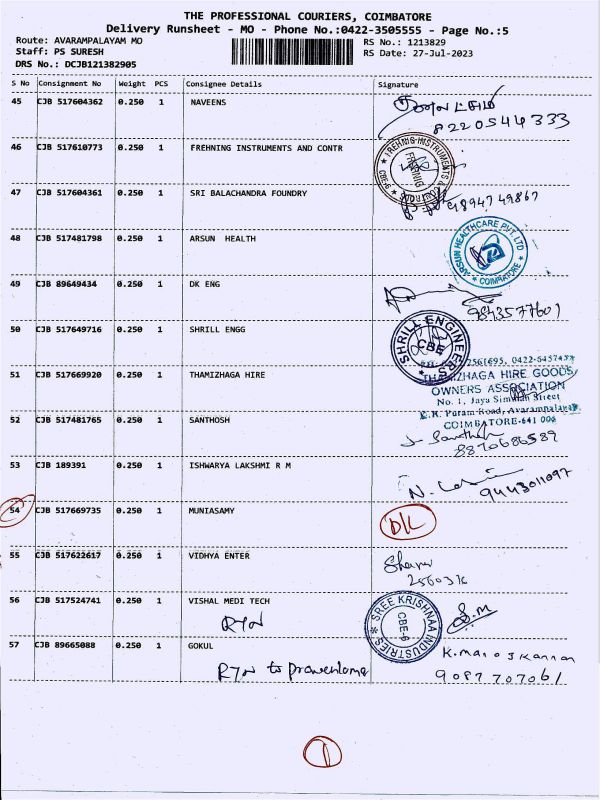 THE PROFESSIONAL COURIERS, COIMBATORE
Delivery Runsheet - MO - Phone No.:0422-3505555 - Page No.:5
Route: AVARAMPALAYAM MO
Staff: PS SURESH
DRS No.: DCJB121382905
RS No.: 1213829
RS Date: 27-Jul-2023
S No Consignment No Weight PCS Consignee Details Signature
45 CJB 517604362 0.250 1 NAVEENS
8220544333
46 CJB 517610773 0.250 1 FREHNING INSTRUMENTS AND CONTR
FREHNIG
CBE-6
47 CJB 517604361 0.250 1 SRI BALACHANDRA FOUNDRY
9894749867
48 CJB 517481798 0.250 1 ARSUN HEALTH
ARSUN HEALTHCARE PVT. LTD
COIMBATORE
49 CJB 89649434 0.250 1 DK ENG
9843577601
50 CJB 517649716 0.250 1 SHRILL ENGG
SHRILL ENGINEERS
CBE
51 CJB 517669920 0.250 1 THAMIZHAGA HIRE
2561695, 0422-6457437
THAMIZHAGA HIRE GOODS
OWNERS ASSOCIATION
No. 1, Jaya Simman Street
K.R. Puram Road, Avarampalayam
COIMBATORE-641 006
52 CJB 517481765 0.250 1 SANTHOSH
J. Santhosh
8870686589
53 CJB 189391 0.250 1 ISHWARYA LAKSHMI R M
9443011097
54 CJB 517669735 0.250 1 MUNIASAMY
D/L
55 CJB 517622617 0.250 1 VIDHYA ENTER
2560316
56 CJB 517524741 0.250 1 VISHAL MEDI TECH
RTN
SREE KRISHNAA INDUSTRIES
CBE-6
S.M
57 CJB 89665088 0.250 1 GOKUL
RTN to
K. Manojkannan
9087707061
1